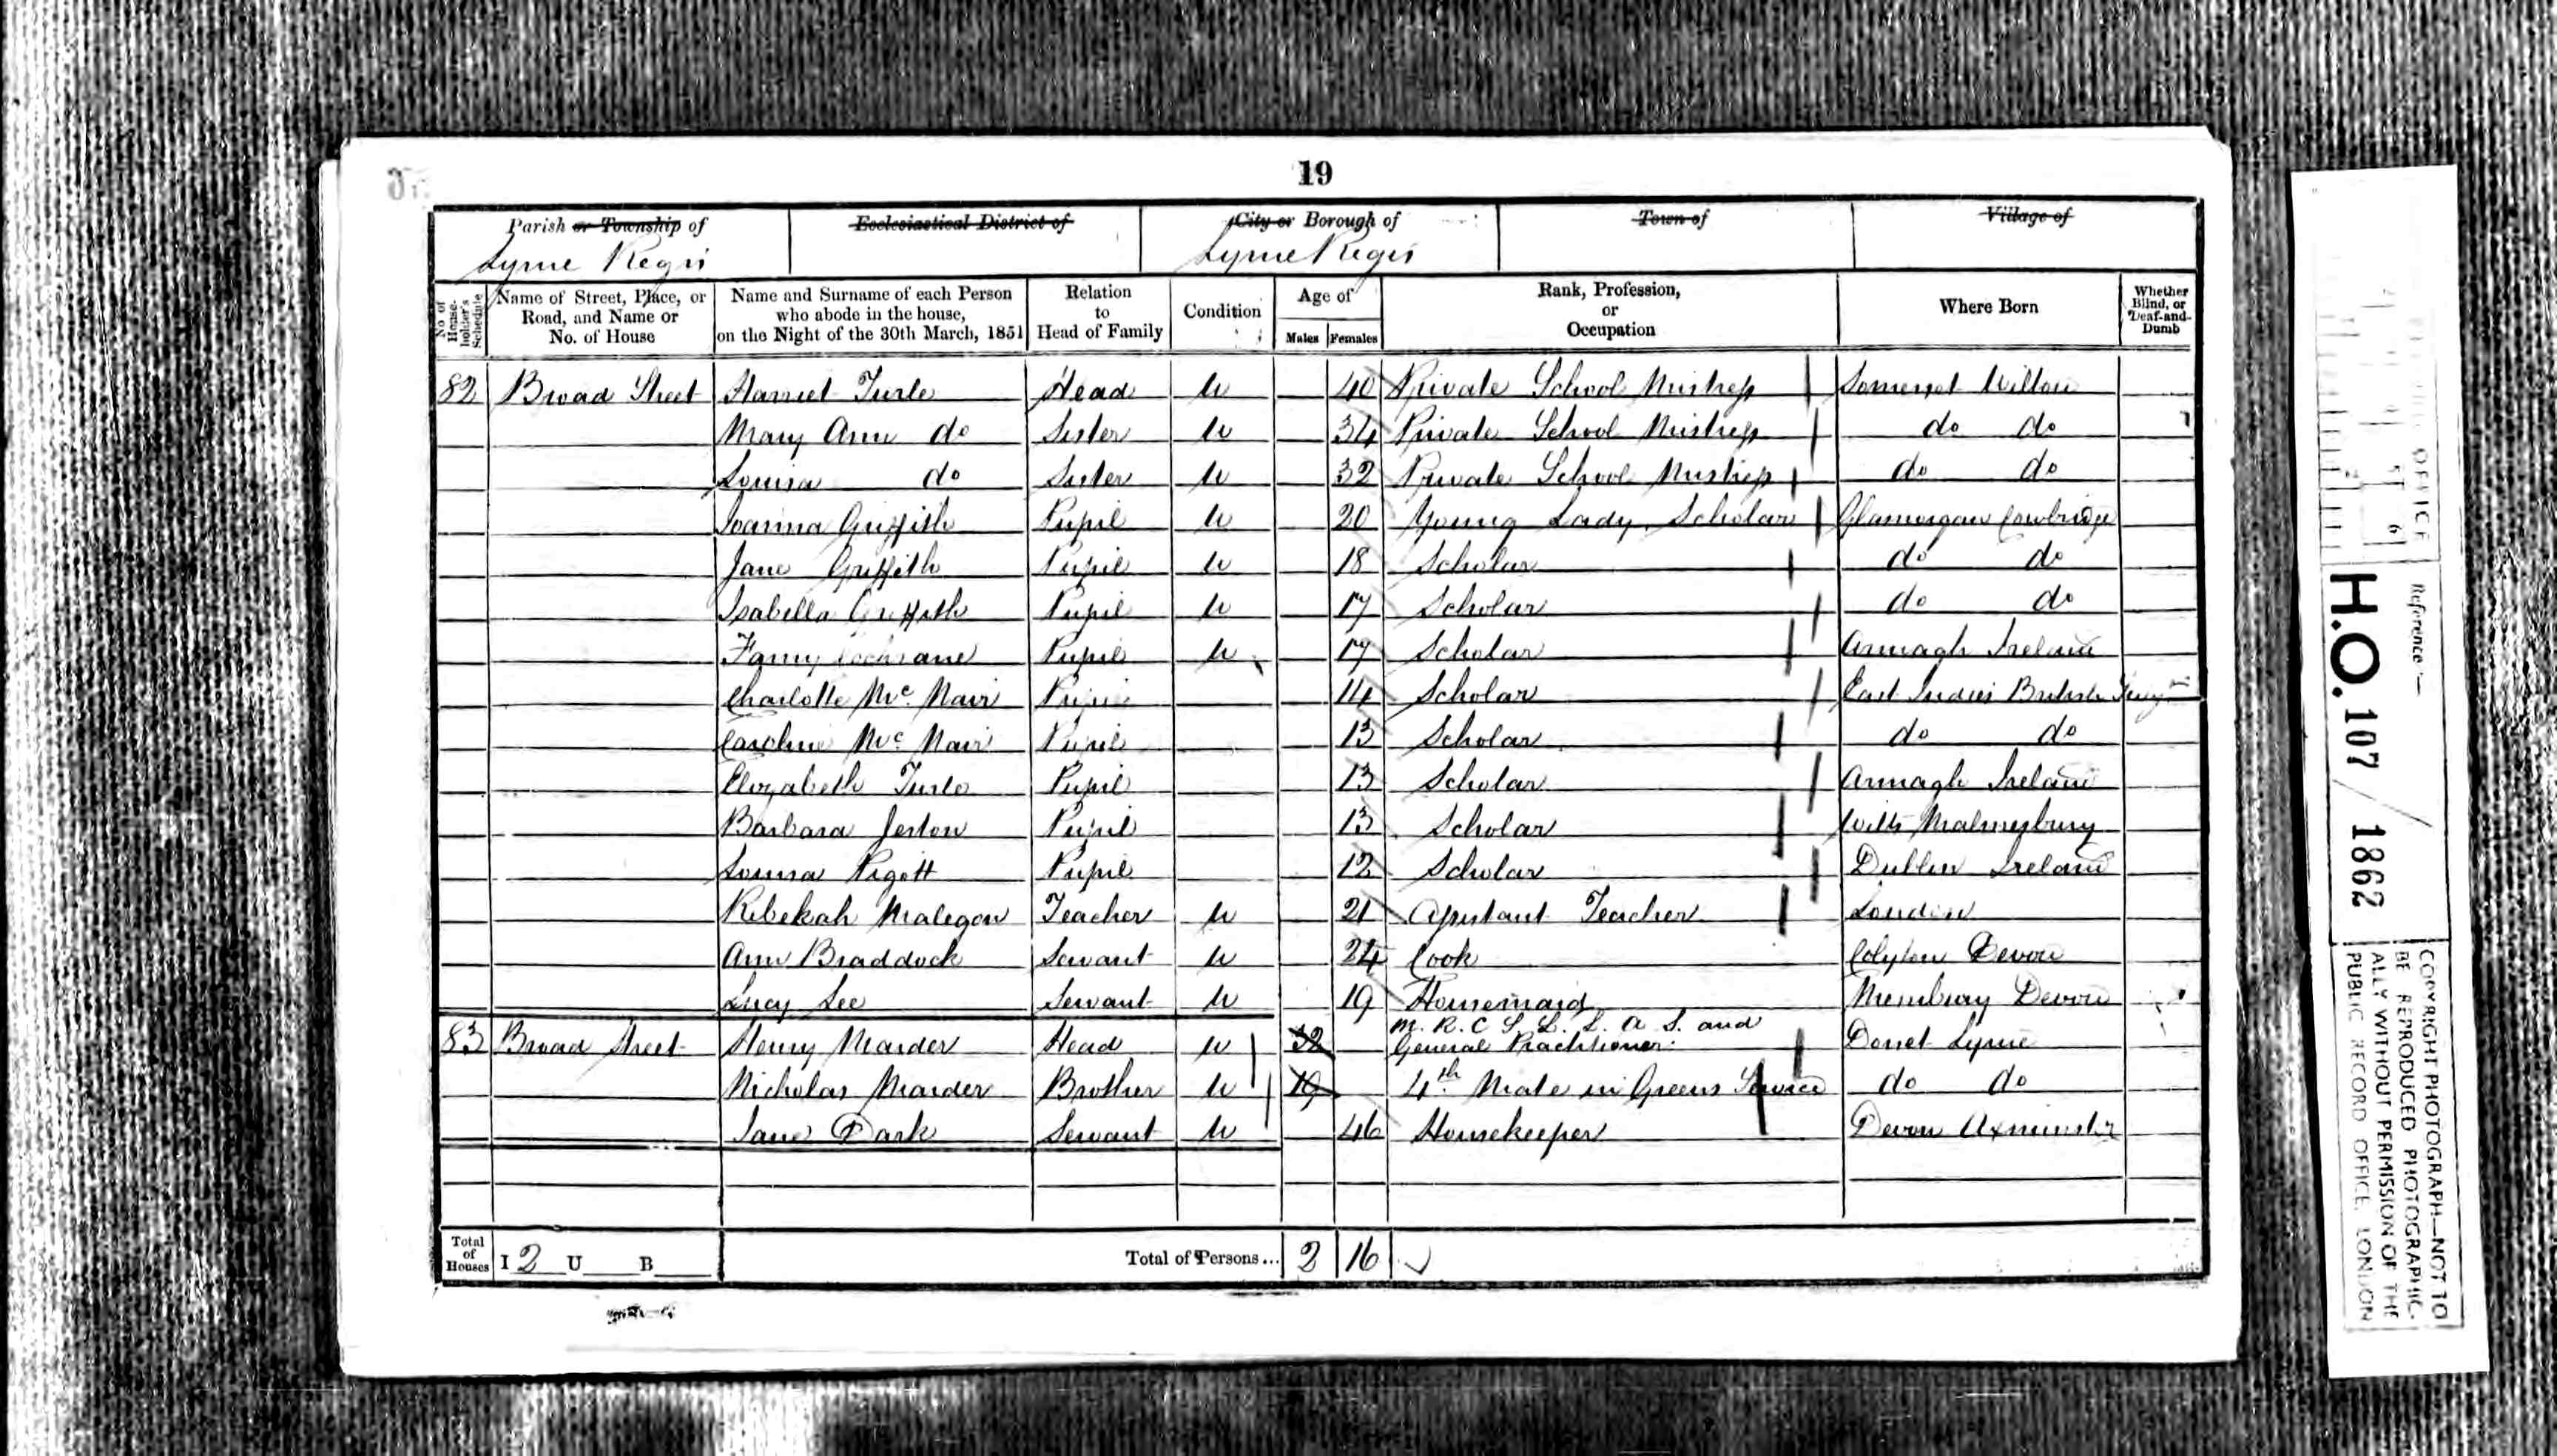 19
Parish or Township of
Ecclesiastical District of
City or Borough of
Town of
Village of
Lyme Regis
Lyme Regis
No. of House-holder's Schedule
Name of Street, Place, or Road, and Name or No. of House
Name and Surname of each Person who abode in the house, on the Night of the 30th March, 1851
Relation to Head of Family
Condition
Age of
Males
Females
Rank, Profession, or Occupation
Where Born
Whether Blind, or Deaf-and-Dumb
82 Broad Street Harriet Turle Head U 40 Private School Mistress Somerset
Mary Ann do Sister U 34 Private School Mistress do do
Louisa do Sister U 32 Private School Mistress do do
Joanna Griffith Pupil U 20 Young Lady Scholar Glamorgan Cowbridge
Jane Griffith Pupil U 18 Scholar do do
Isabella Griffith Pupil U 17 Scholar do do
Fanny Cochrane Pupil U 17 Scholar Armagh Ireland
Charlotte Mc Nair Pupil 14 Scholar East Indies British
Caroline Mc Nair Pupil 13 Scholar do do
Elizabeth Turle Pupil 13 Scholar Armagh Ireland
Barbara Jeston Pupil 13 Scholar Wilts Malmesbury
Louisa Pigott Pupil 12 Scholar Dublin Ireland
Rebekah Teacher U 21 Assistant Teacher London
Ann Braddock Servant U 24 Cook Colyton Devon
Lucy Lee Servant U 19 Housemaid Membury Devon
83 Broad Street Henry Marder Head U 32 M. R. C S. L. L. A S. and General Practitioner Dorset Lyme
Nicholas Marder Brother U 19 4th Mate in Greens Service do do
Jane Dark Servant U 46 Housekeeper Devon Axminster
Total of Houses I 2 U B Total of Persons... 2 16
OFFICE
6
Reference :—
H.O. 107 / 1862
COPYRIGHT PHOTOGRAPH—NOT TO
BE REPRODUCED PHOTOGRAPHIC-
ALLY WITHOUT PERMISSION OF THE
PUBLIC RECORD OFFICE, LONDON